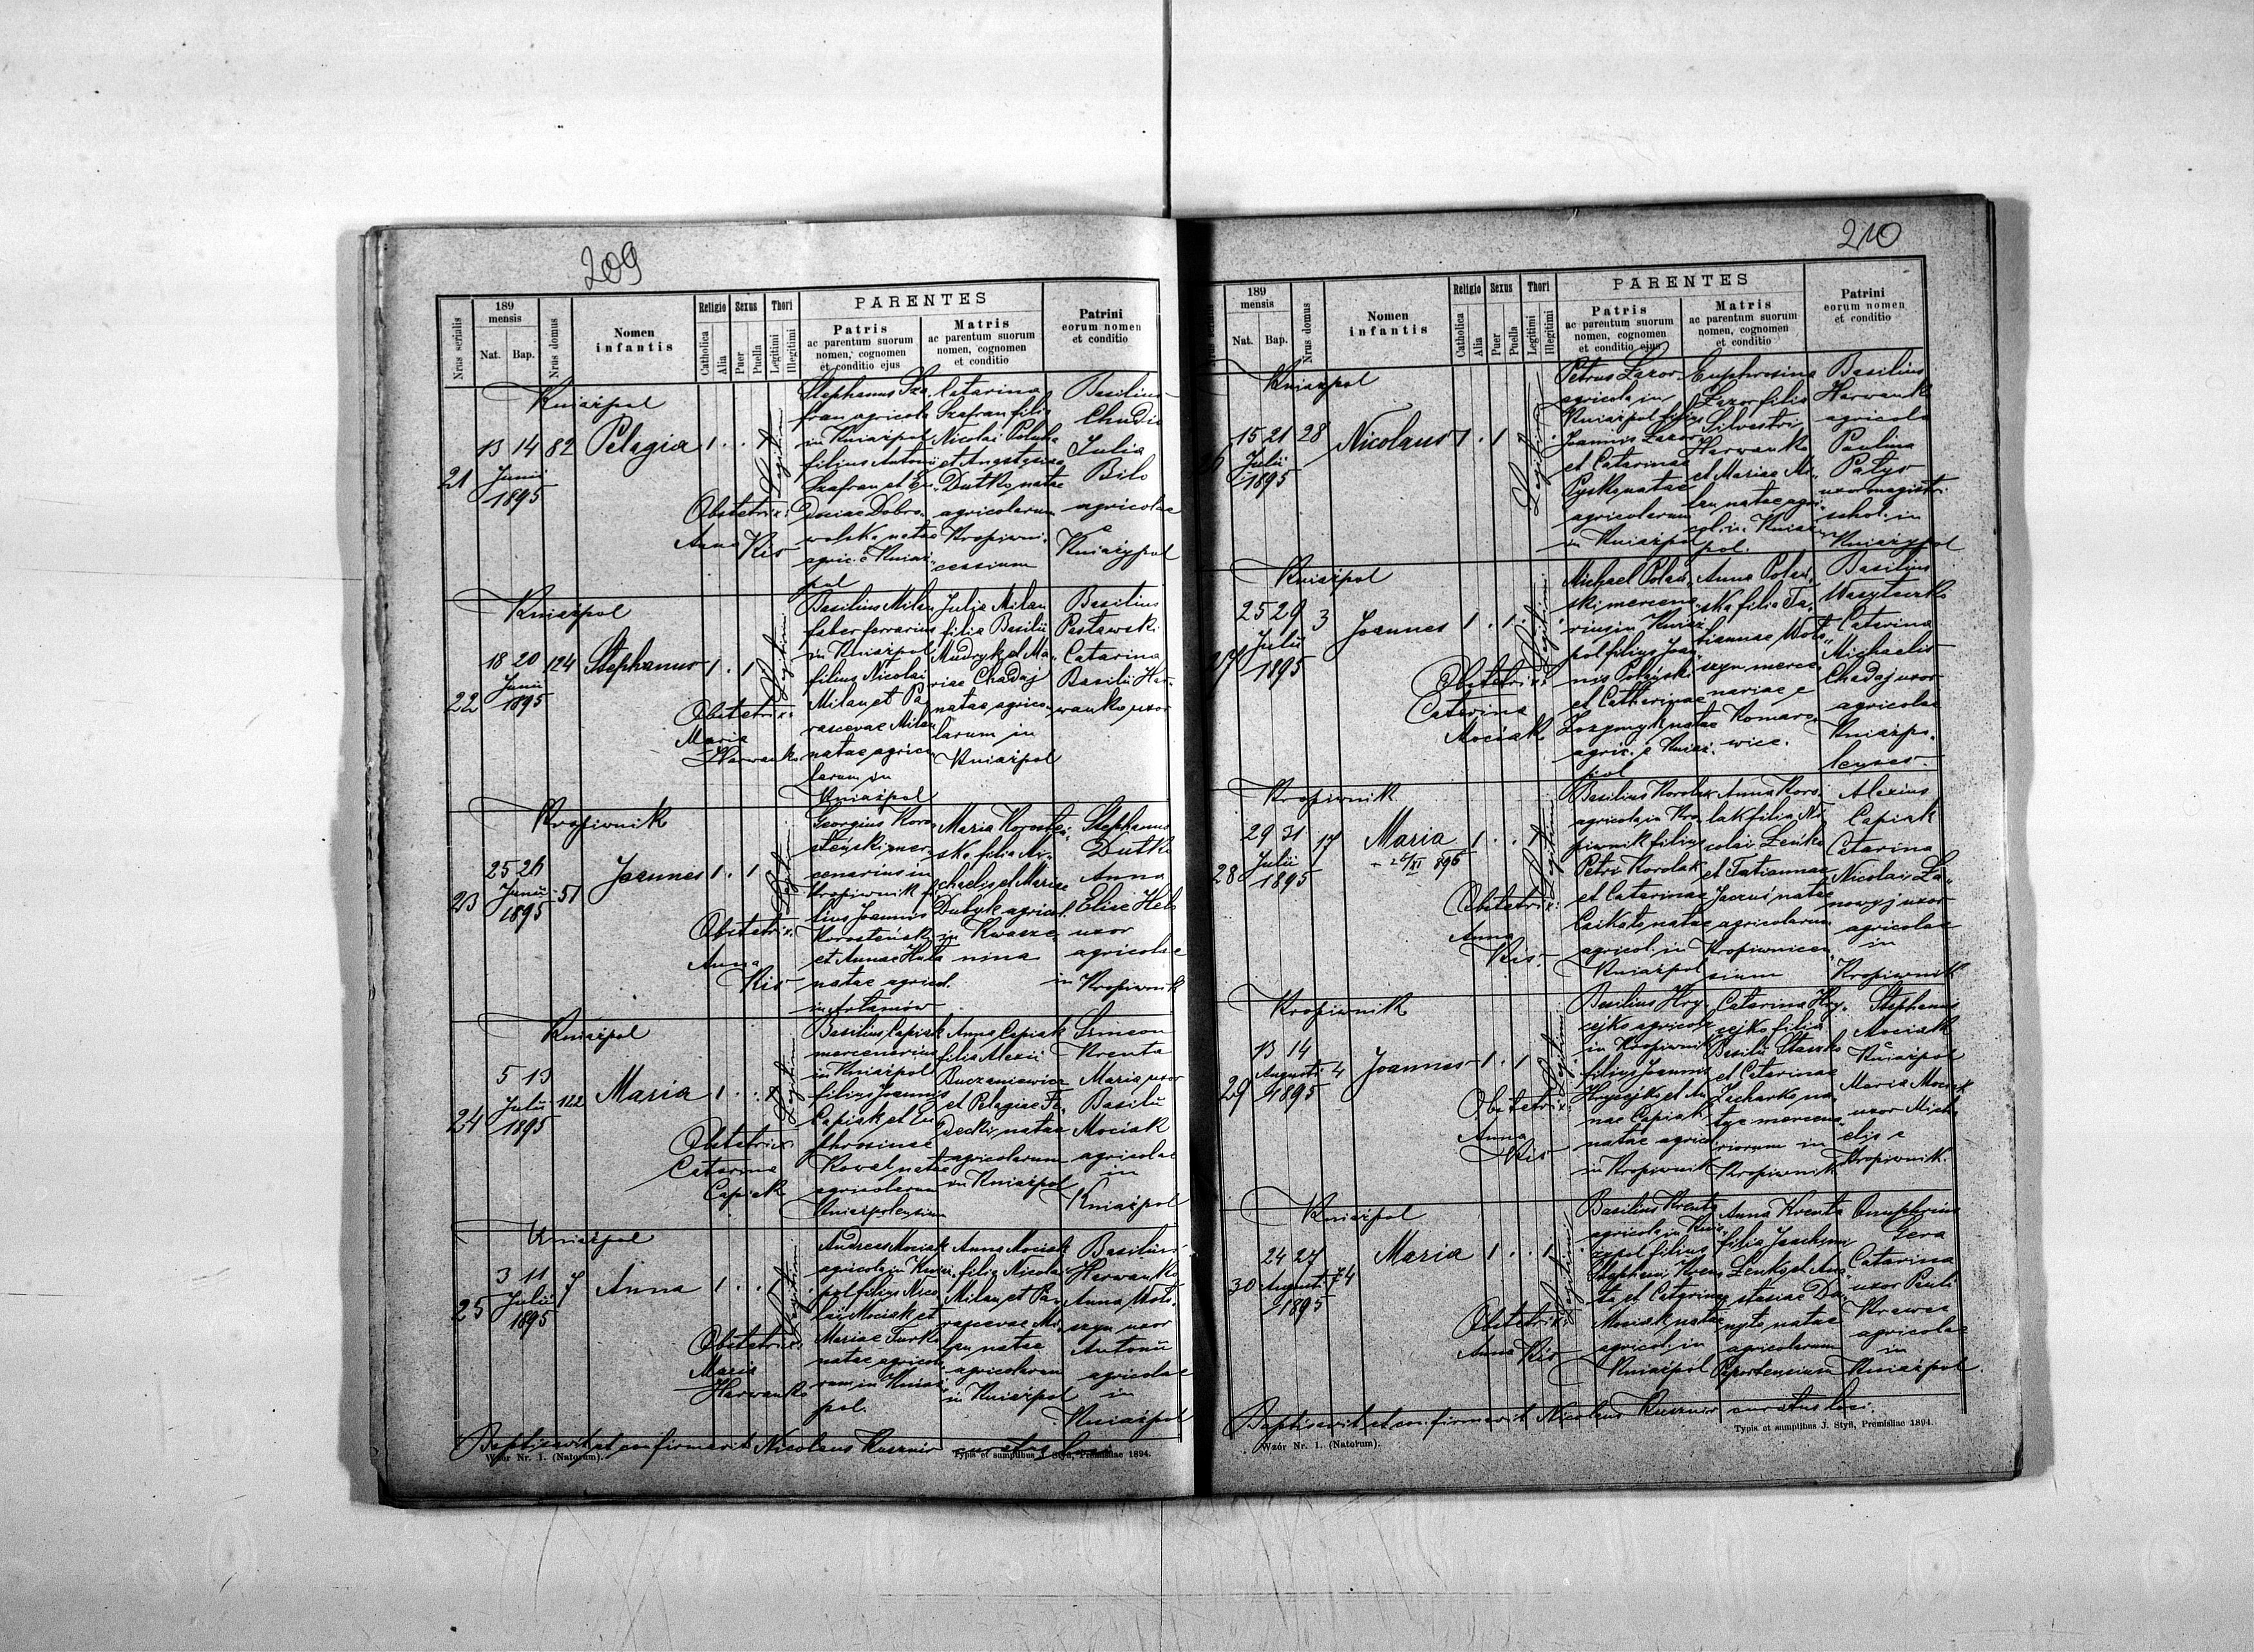 209
189
mensis
Nrus serialis
Nat.
Bap.
Nrus domus
Nomen
infantis
Religio
Catholica
Alia
Sexus
Puer
Puella
Thori
Legitimi
Illegitimi
PARENTES
Patris
ac parentum suorum
nomen, cognomen
et conditio ejus
Matris
ac parentum suorum
nomen, cognomen
et conditio
Patrini
eorum nomen
et conditio
Kniażpol
21
13 14 82 Pelagia 1 . . 1
Junii
1895
Obstetrix:
Anna Kis
Stephanus Sza
fran agricola
in Kniażpol
filius Antonii
Szafran et Eu
dociae Dobro
wolska natae
agric. e Kniaż
pol
Catarina
Szafran filia
Nicolai
et Anastasiae
Dutko natae
agricolarum
Kropiwni
cessium
Basilius
Chudio
Julia
Bilo
agricolae
e
Kniażypol
Kniażpol
22
18 20 124 Stephanus 1 . 1
Junii
1895
Obstetrix:
Maria
Harwanko
Basilius Milan
faber ferrarius
in Kniażpol
filius Nicolai
Milan et Pa
rascevae Milan
natae agrico
larum in
Kniażpol
Julia Milan
filia Basilii
Mudryk et Ma
riae Chadaj
natae agrico
larum in
Kniażpol
Basilius
Pastawski
Catarina
Basilii Har
wanko uxor
Kropiwnik
23
25 26 51 Joannes 1 . 1
Junii
1895
Obstetrix:
Anna
Kis
Georgius Koro
steński mer
cenarius in
Kropiwnik fi
lius Joannis
Korosteński
et Annae Huta
natae agricol.
in Arłamów
Maria Korosteń
ska filia Mi
chaelis et Mariae
Dubyk agricol.
in Kwasze
nina
Stephanus
Dutko
Anna
Eliae Heb
uxor
agricolae
in Kropiwnik
Kniażpol
24
5 13 122 Maria 1 . . 1
Julii
1895
Obstetrix:
Catarina
Capiak
Basilius Capiak
mercenarius
in Kniażpol
filius Joannis
Capiak et Eu
phrosinae
Kowal natae
agricolarum
Kniażpolensium
Anna Capiak
filia Alexii
Buczaniewicz
et Pelagiae Fe
decki natae
agricolarum
in Kniażpol
Simeon
Krenta
Maria uxor
Basilii
Mociak
agricolae
in
Kniażpol
Kniażpol
25
3 11 7 Anna 1 . . 1
Julii
1895
Obstetrix:
Maria
Harwanko
Andreas Mociak
agricola in Kniaż
pol filius Nico
lai Mociak et
Mariae Turko
natae agricola
rum in Kniaż
pol.
Anna Mociak
filia Nicolai
Milan et Pa
rascevae Mi
lan natae
agricolarum
in Kniażpol
Basilius
Harwanko
Anna Woło
szyn uxor
Antonii
agricolae
in
Kniażpol
Baptisavit et confirmavit Nicolaus Kusznir curatus loci
Wzór Nr. 1. (Natorum).
Typis et sumptibus J. Styfi, Premisliae 1894.
210
189
mensis
Nat.
Bap.
Nrus domus
Nomen
infantis
Religio
Catholica
Alia
Sexus
Puer
Puella
Thori
Legitimi
Illegitimi
PARENTES
Patris
ac parentum suorum
nomen, cognomen
et conditio ejus
Matris
ac parentum suorum
nomen, cognomen
et conditio
Patrini
eorum nomen
et conditio
Kniażpol
15 21 28 Nicolaus 1 . 1
Julii
1895
Petrus Łazor
agricola in
Kniażpol filius
Joannis Łazor
et Catarinae
Pysko natae
agricolarum
in Kniażpol
Euphrosina
Łazor filia
Silvestri
Harwanko
et Mariae Mi
lan natae agri
col. in Kniaż
pol.
Basilius
Harwanko
agricola
Paulina
Patys
uxor magistri
schol. in
Kniażypol
Kniażpol
27
25 29 3 Joannes 1 . 1
Julii
1895
Obstetrix:
Catarina
Mociak
Michael Polań
ski mercena
rius in Kniaż
pol filius Joan
nis Polański
et Catherinae
natae
agric. e Kniaż
pol
Anna Polań
ska filia Ta
tiannae Woło
szyn merce
nariae e
Komaro
wice.
Basilius
Wasyłeczko
Catarina
Michaelis
Chadaj uxor
agricolae
Kniażpo
lenses.
Kropiwnik
28
29 31 17 Maria 1 . . 1
Julii
1895
Obstetrix:
Anna
Kis.
Basilius Korolak
agricola in Kro
piwnik filius
Petri Korolak
et Catarinae
natae
agricol. in
Kniażpol
Anna Koro
lak filia Ni
colai Zeńko
et Tatiannae
natae
agricolarum
Kropiwnicen
sium
Alexius
Capiak
Catarina
Nicolai Ła
uxor
agricolae
in
Kropiwnik
Kropiwnik
29
13 14 4 Joannes 1 . 1
Augusti
1895
Obstetrix:
Anna
Kis
Basilius Hry
cejko agricola
in Kropiwnik
filius Joannis
Hrycejko et An
nae Capiak
natae agricol.
in Kropiwnik
Catarina Hry
cejko filia
Basilii Staszko
et Catarinae
Zacharko na
tae mercena
riorum in
Kropiwnik
Stephanus
Mociak
e
Kniażpol
Maria Mociak
uxor Mich
elis e
Kropiwnik.
Kniażpol
30
24 27 74 Maria 1 . . 1
Augusti
1895
Obstetrix:
Anna Kis
Basilius Krenta
agricola in Knia
żpol filius
Stephani Kren
ta et Catarinae
Mociak natae
agricol. in
Kniażpol
Anna Krenta
filia Joachim
Zenko et Ana
stasiae Da
nyło natae
agricolarum
Paportensium
Onuphrius
Gera
Catarina
uxor Pauli
Krawec
agricolae
in
Kniażpol.
Baptisavit et confirmavit Nicolaus Kusznir curatus loci.
Wzór Nr. 1. (Natorum).
Typis et sumptibus J. Styfi, Premisliae 1894.